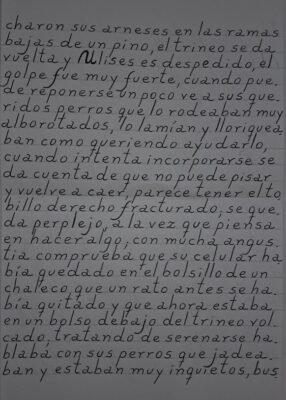 charon sus arneses en las ramas
bajas de un pino, el trineo se da
vuelta y Ulises es despedido, el
golpe fue muy fuerte, cuando pue-
de reponerse un poco ve a sus que-
ridos perros que lo rodeaban muy
alborotados, lo lamían y lloriquea-
ban como queriendo ayudarlo,
cuando intenta incorporarse se
da cuenta de que no puede pisar
y vuelve a caer, parece tener el to-
billo derecho fracturado, se que-
da perplejo, a la vez que piensa
en hacer algo, con mucha angus-
tia comprueba que su celular ha-
bía quedado en el bolsillo de un
chaleco que un rato antes se ha-
bía quitado y que ahora estaba
en un bolso debajo del trineo vol-
cado, tratando de serenarse ha-
blaba con sus perros que jadea-
ban y estaban muy inquietos, bus-